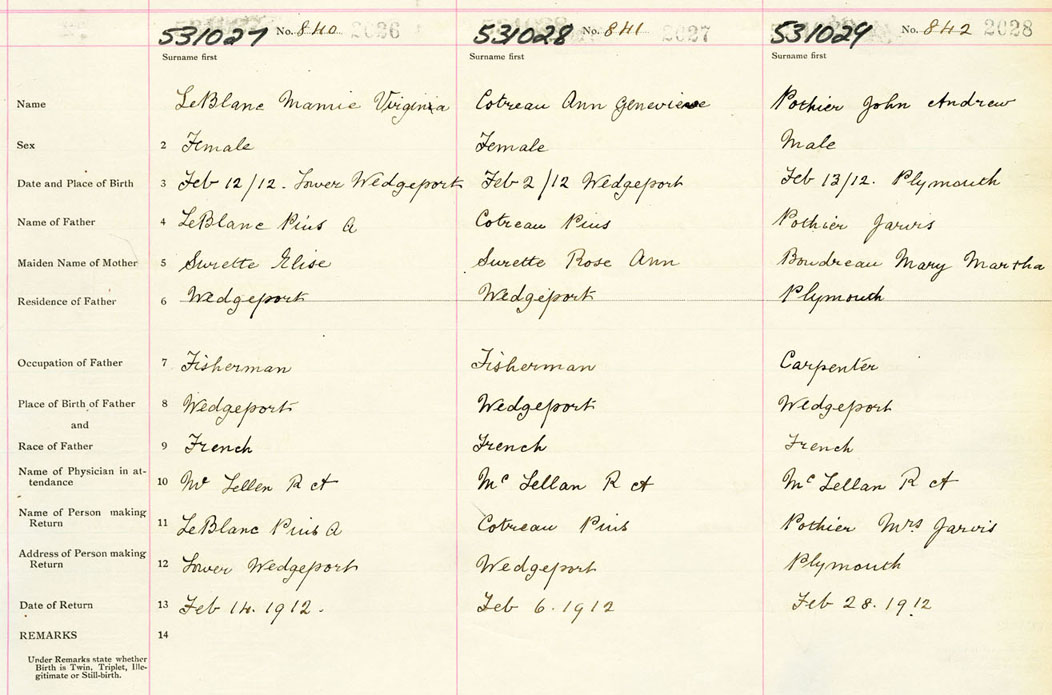 531027 No. 840 2026 531028 No. 841 2027 531029 No. 842 2028
Surname first Surname first Surname first
Name LeBlanc Mamie Virginia Cotreau Ann Genevieve Pothier John Andrew
Sex 2 Female Female Male
Date and Place of Birth 3 Feb 12/12. Lower Wedgeport Feb 2/12 Wedgeport Feb 13/12. Plymouth
Name of Father 4 LeBlanc Pius A Cotreau Pius Pothier Jarvis
Maiden Name of Mother 5 Surette Elise Surette Rose Ann Boudreau Mary Martha
Residence of Father 6 Wedgeport Wedgeport Plymouth
Occupation of Father 7 Fisherman Fisherman Carpenter
Place of Birth of Father 8 Wedgeport Wedgeport Wedgeport
and
Race of Father 9 French French French
Name of Physician in at-
tendance 10 Mc Lellen R A Mc Lellan R A Mc Lellan R A
Name of Person making
Return 11 LeBlanc Pius A Cotreau Pius Pothier Mrs Jarvis
Address of Person making
Return 12 Lower Wedgeport Wedgeport Plymouth
Date of Return 13 Feb 14. 1912. Feb 6. 1912 Feb 28. 1912
REMARKS 14
Under Remarks state whether
Birth is Twin, Triplet, Ille-
gitimate or Still-birth.